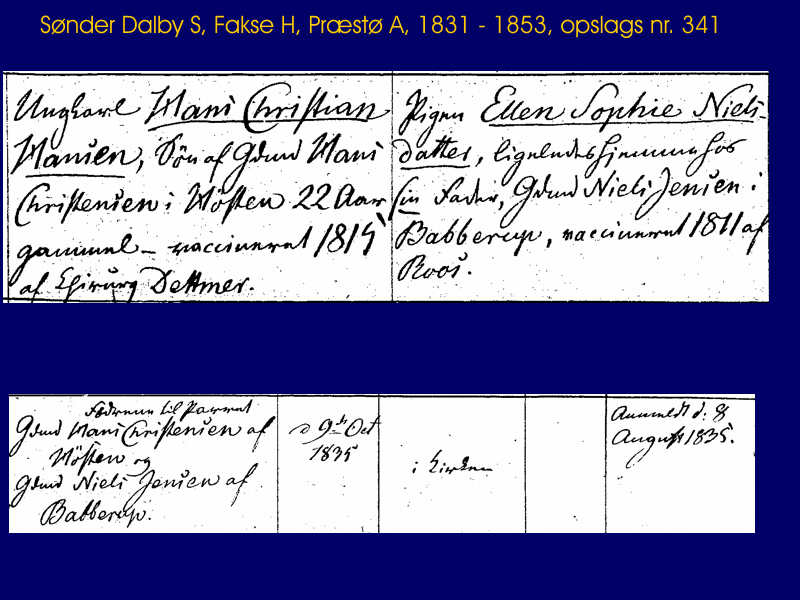 Sønder Dalby S, Fakse H, Præstø A, 1831 - 1853, opslags nr. 341
Ungkarl Hans Christian
Hansen, Søn af Gdmd Hans
Christensen i Tösten 22 Aar
gammel – vaccineret 1815
af Chirurg Dettmer.
Pigen Ellen Sophie Niels-
datter, ligeledes hjemme hos
sin Fader, Gdmd Niels Jensen i
Babberup, vaccineret 1811 af
Roos.
Fædrene til Parret
Gdmd Hans Christensen af
Tösten og
Gdmd Niels Jensen af
Babberup.
d 9de Oct
1835
i Kirken
Anmeldt d: 8
August 1835.